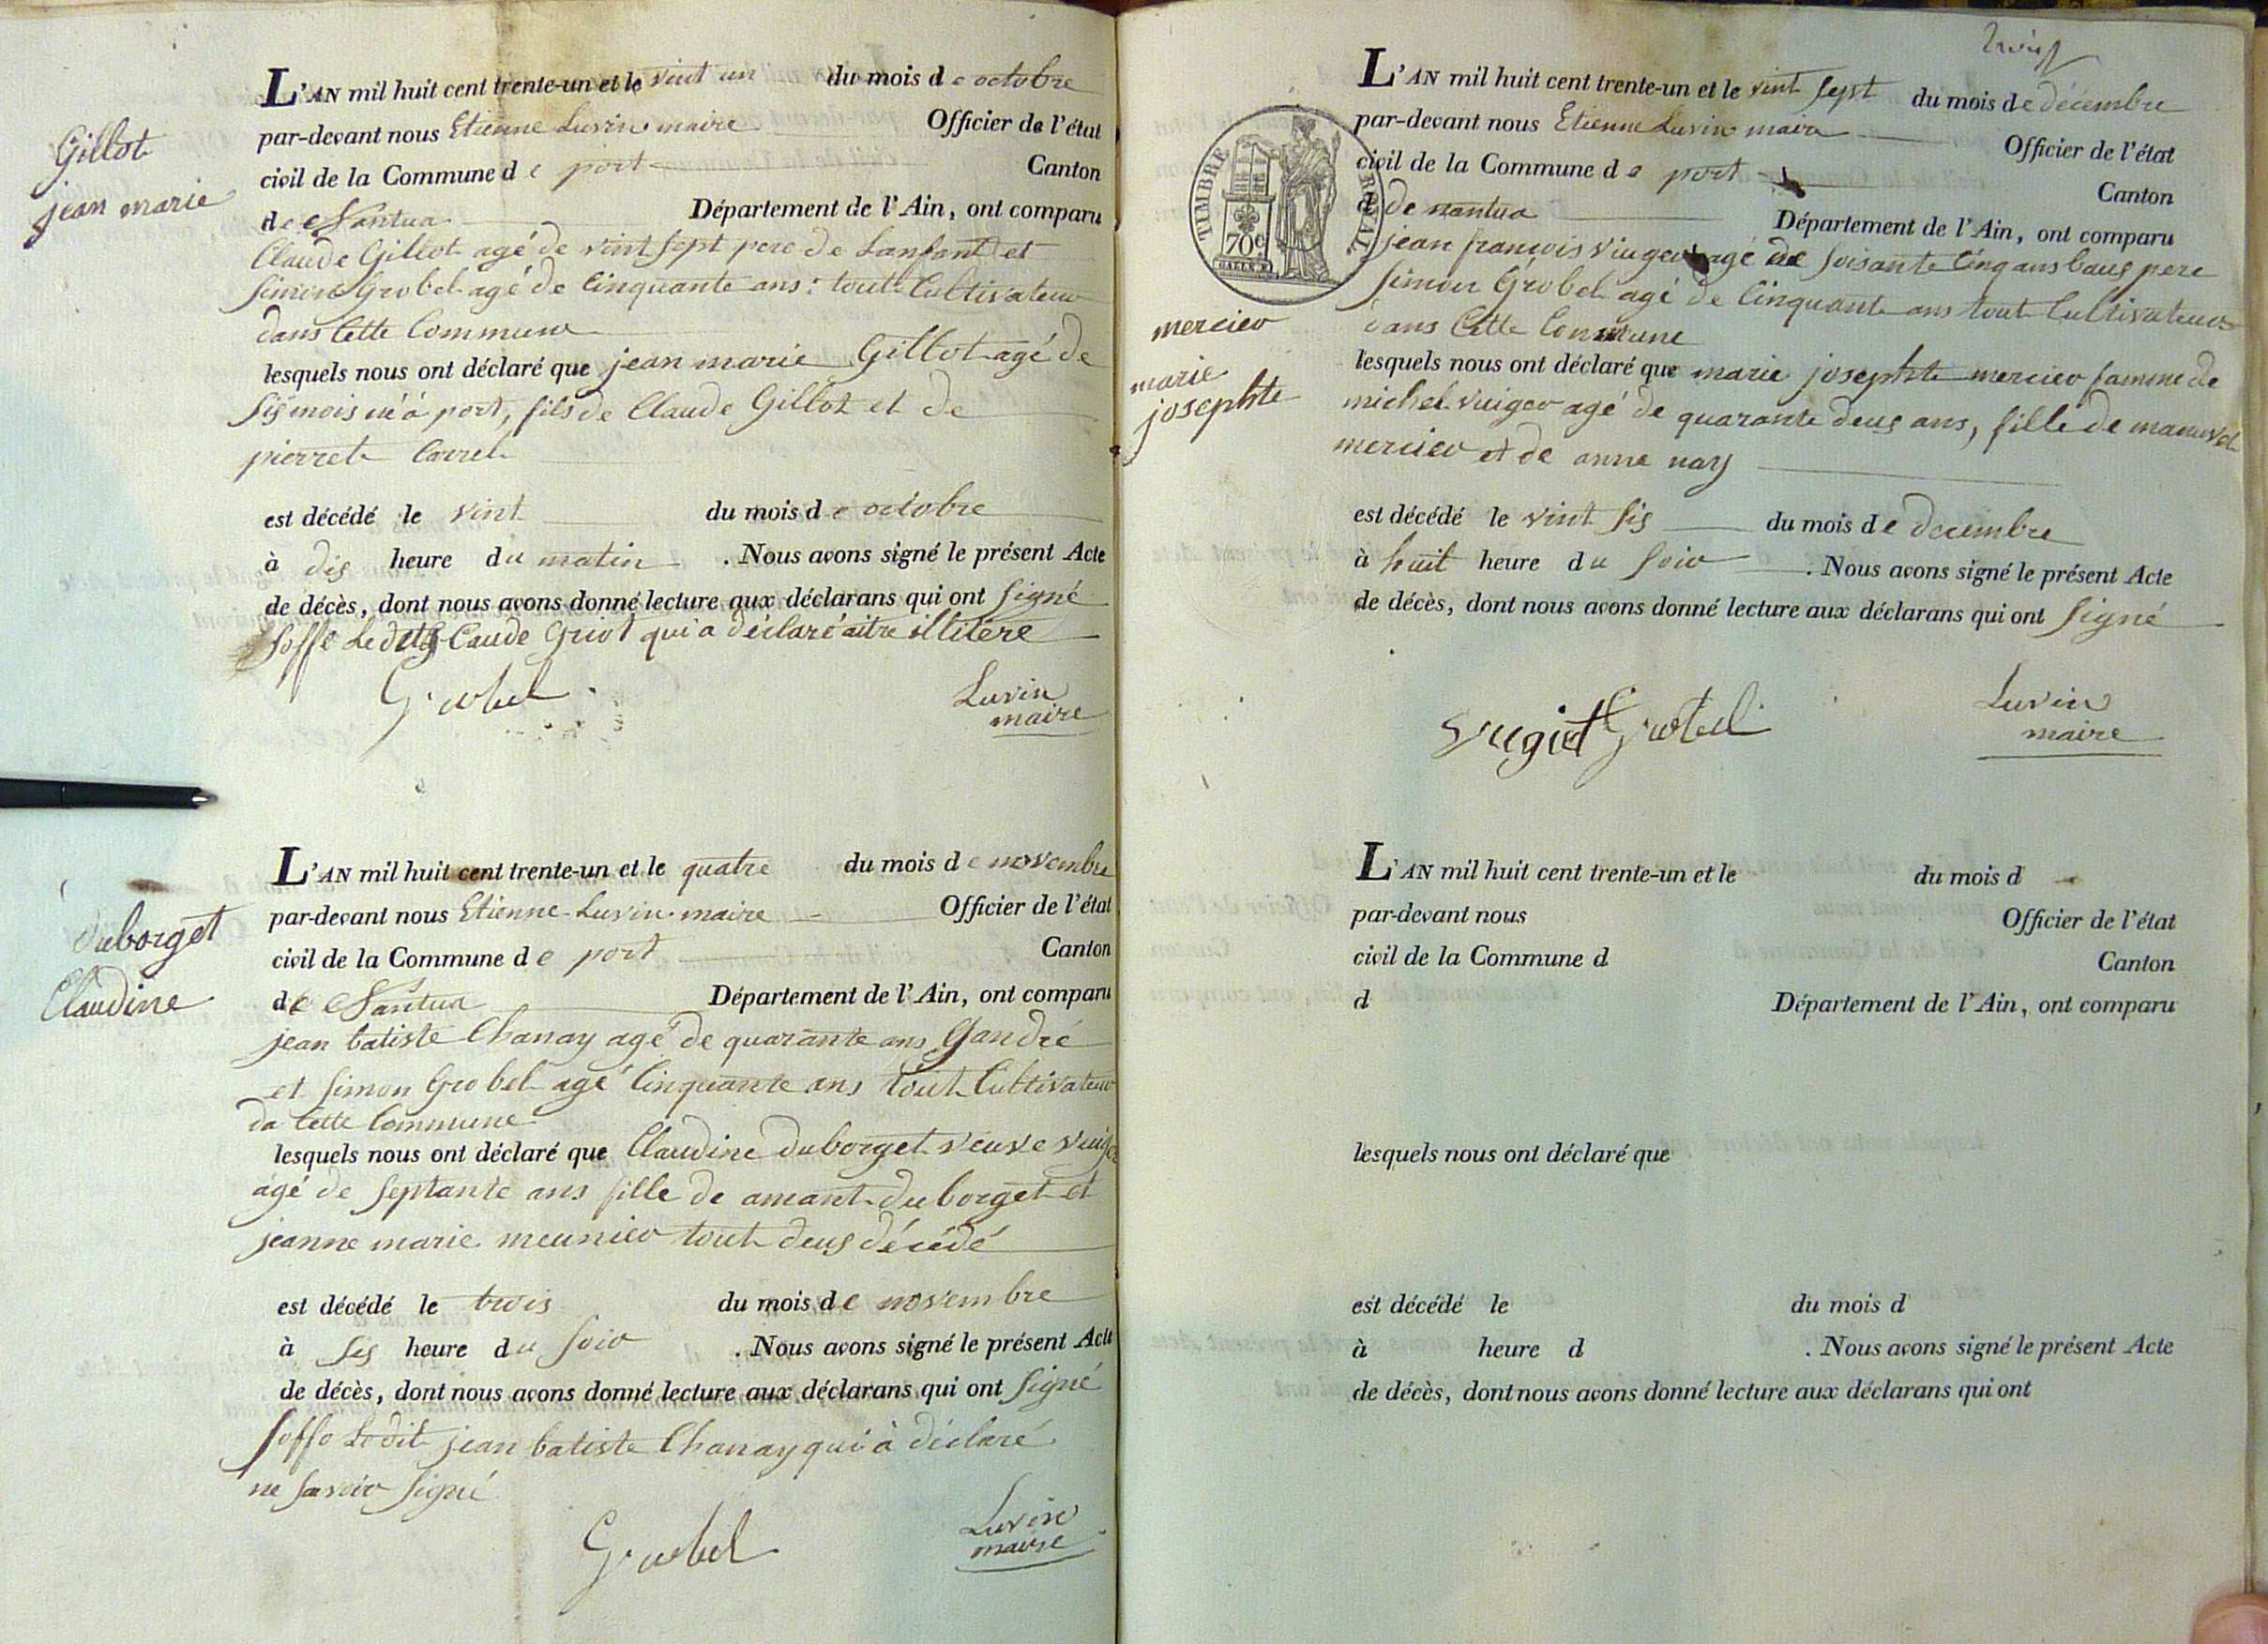 Gillot
jean marie
L'AN mil huit cent trente-un et le vint un du mois de octobre
par-devant nous Etienne Luvin maire Officier de l'état
civil de la Commune de port Canton
de Nantua Département de l'Ain, ont comparu
Claude Gillot agé de vint sept pere de Lanfant et
simon Grobel agé de Cinquante ans : tout Cultivateur
dans Cette Commune
lesquels nous ont déclaré que jean marie Gillot agé de
sis mois né à port, fils de Claude Gillot et de
pierrete Carrel
est décédé le vint du mois de octobre
à dis heure du matin . Nous avons signé le présent Acte
de décès, dont nous avons donné lecture aux déclarans qui ont signé
soffe Le dit Claude qui a déclaré aitre illitére
Grobel
Luvin
maire
duborget
Claudine
L'AN mil huit cent trente-un et le quatre du mois de novembre
par-devant nous Etienne Luvin maire Officier de l'état
civil de la Commune de port Canton
de Nantua Département de l'Ain, ont comparu
jean batiste Chanay agé de quarante ans Gandré
et simon Grobel agé Cinquante ans tout Cultivateur
da Cette Commune
lesquels nous ont déclaré que Claudine duborget veuve
agé de septante ans fille de amant duborget et
jeanne marie meunier tout deus décédé
est décédé le trois du mois de novembre
à sis heure du soir . Nous avons signé le présent Acte
de décès, dont nous avons donné lecture aux déclarans qui ont signé
soffe Ledit jean batiste Chanay qui à déclaré
ne savoir signé
Grobel
Luvin
maire
L'AN mil huit cent trente-un et le vint sept du mois de décembre
par-devant nous Etienne Luvin maire Officier de l'état
civil de la Commune de port Canton
de nantua Département de l'Ain, ont comparu
TIMBRE ROYAL
70c
jean françois agé de soisante Cinq ans baus pere
simon Grobel agé de Cinquante ans tout Cultivateur
dans Cette Commune
mercier
marie
josephte
lesquels nous ont déclaré que marie josephte mercier famme de
michel vuiger agé de quarante deus ans, fille de manuel
mercier et de anne nay
est décédé le vint sis du mois de decembre
à huit heure du soir . Nous avons signé le présent Acte
de décès, dont nous avons donné lecture aux déclarans qui ont signé
Grobel
Luvin
maire
L'AN mil huit cent trente-un et le du mois d
par-devant nous Officier de l'état
civil de la Commune d Canton
d Département de l'Ain, ont comparu
lesquels nous ont déclaré que
est décédé le du mois d
à heure d . Nous avons signé le présent Acte
de décès, dont nous avons donné lecture aux déclarans qui ont